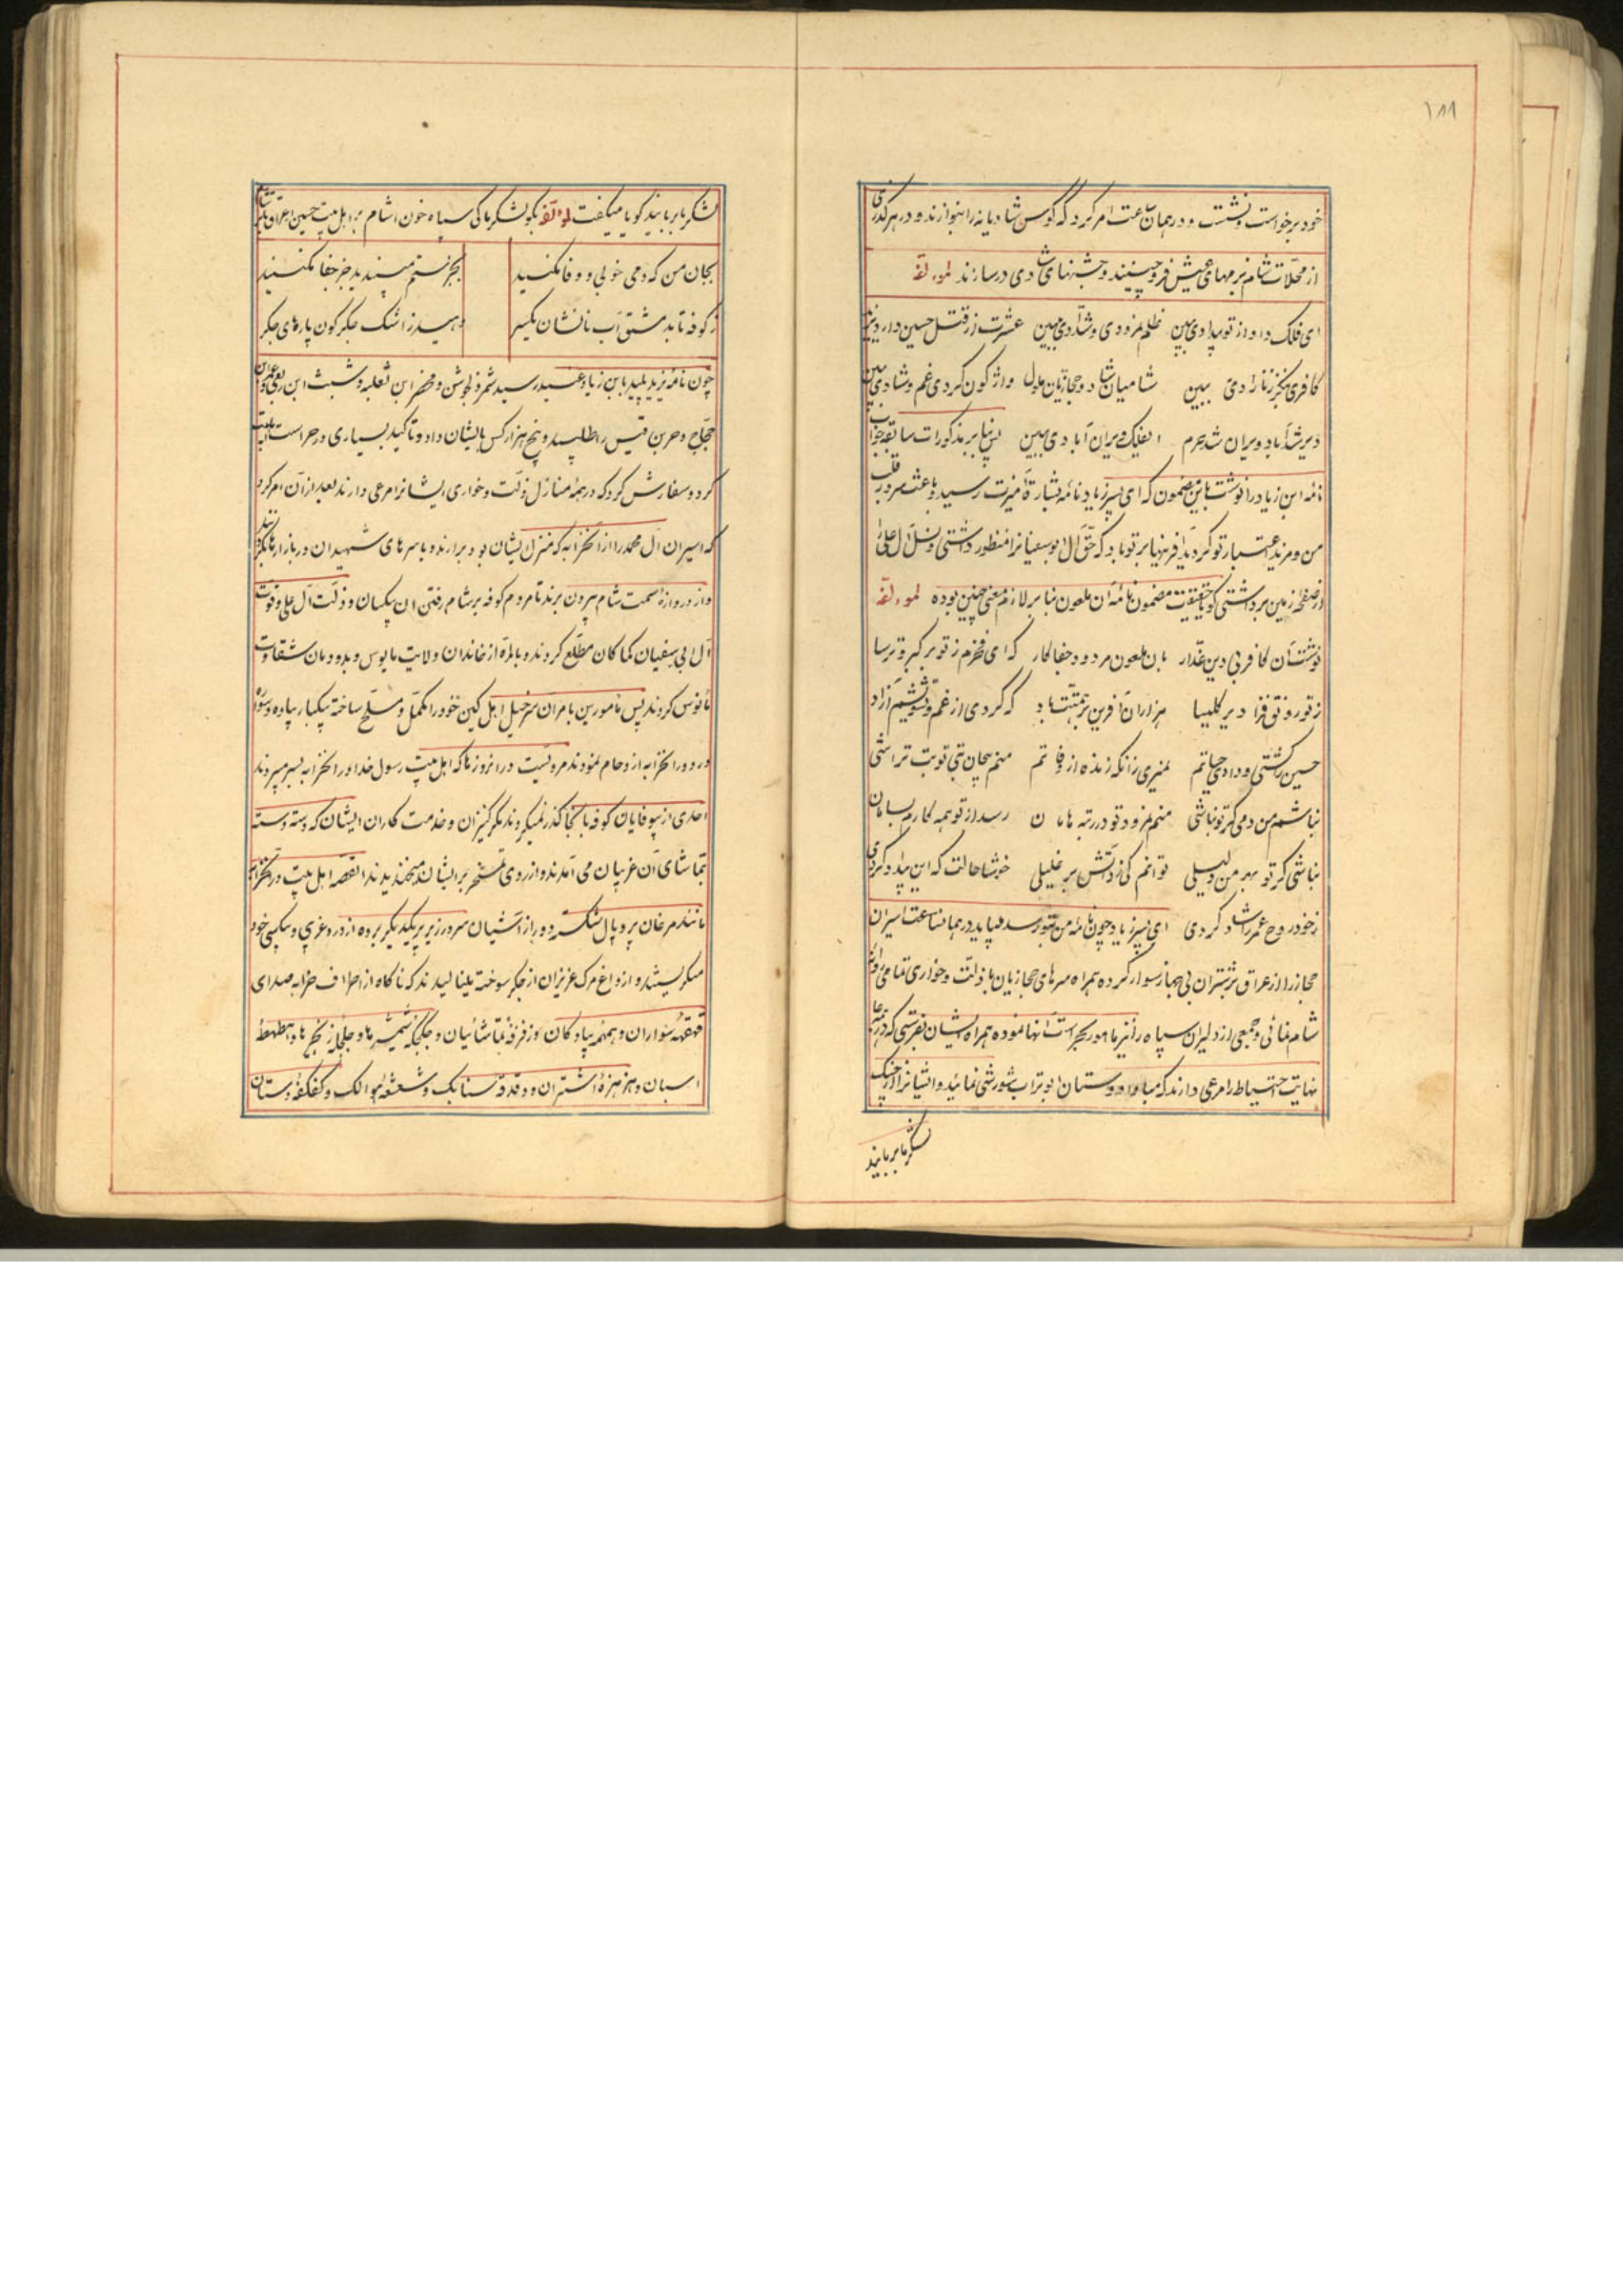 ۱۸۸
خود برخواست و نشست و در همان ساعت امر کرد که کوس شادیانه را بنوازند و در هر گذری
از محلات شام بزمهای عیش فرو چینند و جشنهای شادی در سازند لمؤلفه
ای فلک داد از تو بیدادی ببین ظلم نمرودی و شدادی ببین عشرت از قتل حسین دارد یزید
کافری نگر زنازادی ببین شامیان شاد و حجازیان ملول واژگون کردی غم و شادی ببین
دیر شد آباد و ویران شد حرم ایفلک ویران آبادی ببین پس بنا بر مذکورات سابقه جواب
نامه ابن زیاد را نوشت باین مضمون که ای پسر زیاد نامه بشارة آمیزت رسید و باعث سرور قلب
من و مزید اعتبار تو گردید آفرینها بر تو باد که حق آل ابوسفیانرا منظور داشتی و نسل آل علی را
از صفحه زمین برداشتی گویا حقیقت مضمون نامه آن ملعون بنا بر لازم معنی چنین بوده لمؤلفه
نوشت آن کافر بی دین غدار بان ملعون مردود جفاکار که ای فخرم ز تو بر گبر و ترسا
ز تو رونق فزا دیر کلیسا هزاران آفرین بر همتت باد که کردی از غم و تشویشم آزاد
حسین کشتی و دادی حیاتم نمیری زانکه زنده از وفاتم منم بیجان تنی تو بت تراشی
نباشم من دمی گر تو نباشی منم نمرود تو در رتبه هامان رسد از تو همه کارم بسامان
نباشی گر تو بهر من دلیلی توانم کی زد آتش بر خلیلی خوشا حالت که این بیداد کردی
ز خود روح عمر را شاد کردی ای پسر زیاد چون نامه من بتو رسد میباید در همان ساعت اسیران
حجاز را از عراق بر شتران بی جهاز سوار کرده همراه سرهای حجازیان با ذلت و خواری تمامی روانه
شام نمائی و جمعی از دلیران سپاه را نیز مامور بحراست آنها نموده همراه ایشان بفرستی که در
نهایت احتیاط را مرعی دارند که مبادا دوستان ابوتراب شورشی نمایند و ایشانرا از چنگ
لشکر ما بربایند
لشکر ما بربایند گویا میگفت لمؤلفه بگو بلشکر ما کی سپاه خون آشام بر اهل بیت حسین از عراق تا شام
بجان من که دمی خوبی و وفا نکنید بجز ستم مپسندید جز جفا نکنید
ز کوفه تا بدمشق آب نانشان یکسر دهید از اشک جگرگون پاره‌های جگر
چون نامه یزید پلید بابن زیاد عنید رسید شمر ذی الجوشن و خضر ابن ثعلبه و شبث ابن ربعی و عمرو بن
حجاج و حر بن قیس را طلبید و پنج هزار کس بایشان داد و تاکید بسیاری در حراست اهل بیت
کرد و سفارش کرد که در همه منازل ذلت و خواری ایشانرا مرعی دارند بعد از آن امر کرد
که اسیران آل محمد را از آنخرابه که منزل ایشان بود برآرند و با سرهای شهیدان در بازارها بگردانند
و از دروازه سمت شام بیرون برند تا مردم کوفه بر شام رفتن آن بیکسان و ذلت آل علی و قوت
آل ابی سفیان کما کان مطلع گردند و بالمره از خاندان ولایت مایوس و بدودمان شقاوت
مانوس گردند پس مامورین بامر آن سرخیل اهل کین خود را مکمل و مسلح ساخته بیکبار پیاده و سواره
ورود در آنخرابه ازدحام نمودند مرویست در آنروزها که اهل بیت رسول خدا در آنخرابه بسر میبردند
احدی از بیوفایان کوفه بآنجا گذر نمیکردند مگر کنیزان و خدمت کاران ایشان که دسته دسته
بتماشای آن غریبان می آمدند و از روی تمسخر بر ایشان میخندیدند القصه اهل بیت در آنخرابه
مانند مرغان پر و بال شکسته دور از آشیان سر در زیر پر یکدیگر برده از درد غریبی و بیکسی خود
میگریستند و از داغ مرگ عزیزان از جگر سوخته مینالیدند که ناگاه از اطراف خرابه صدای
قهقهه سواران و همهمه پیادگان و زفزفه تماشائیان و چکچکه شمشیرها و جلجله زنجیرها و طهطهه
اسبان و هزهزه اشتران و دقدقه سنابک و شعشعه و کفکفه دستان